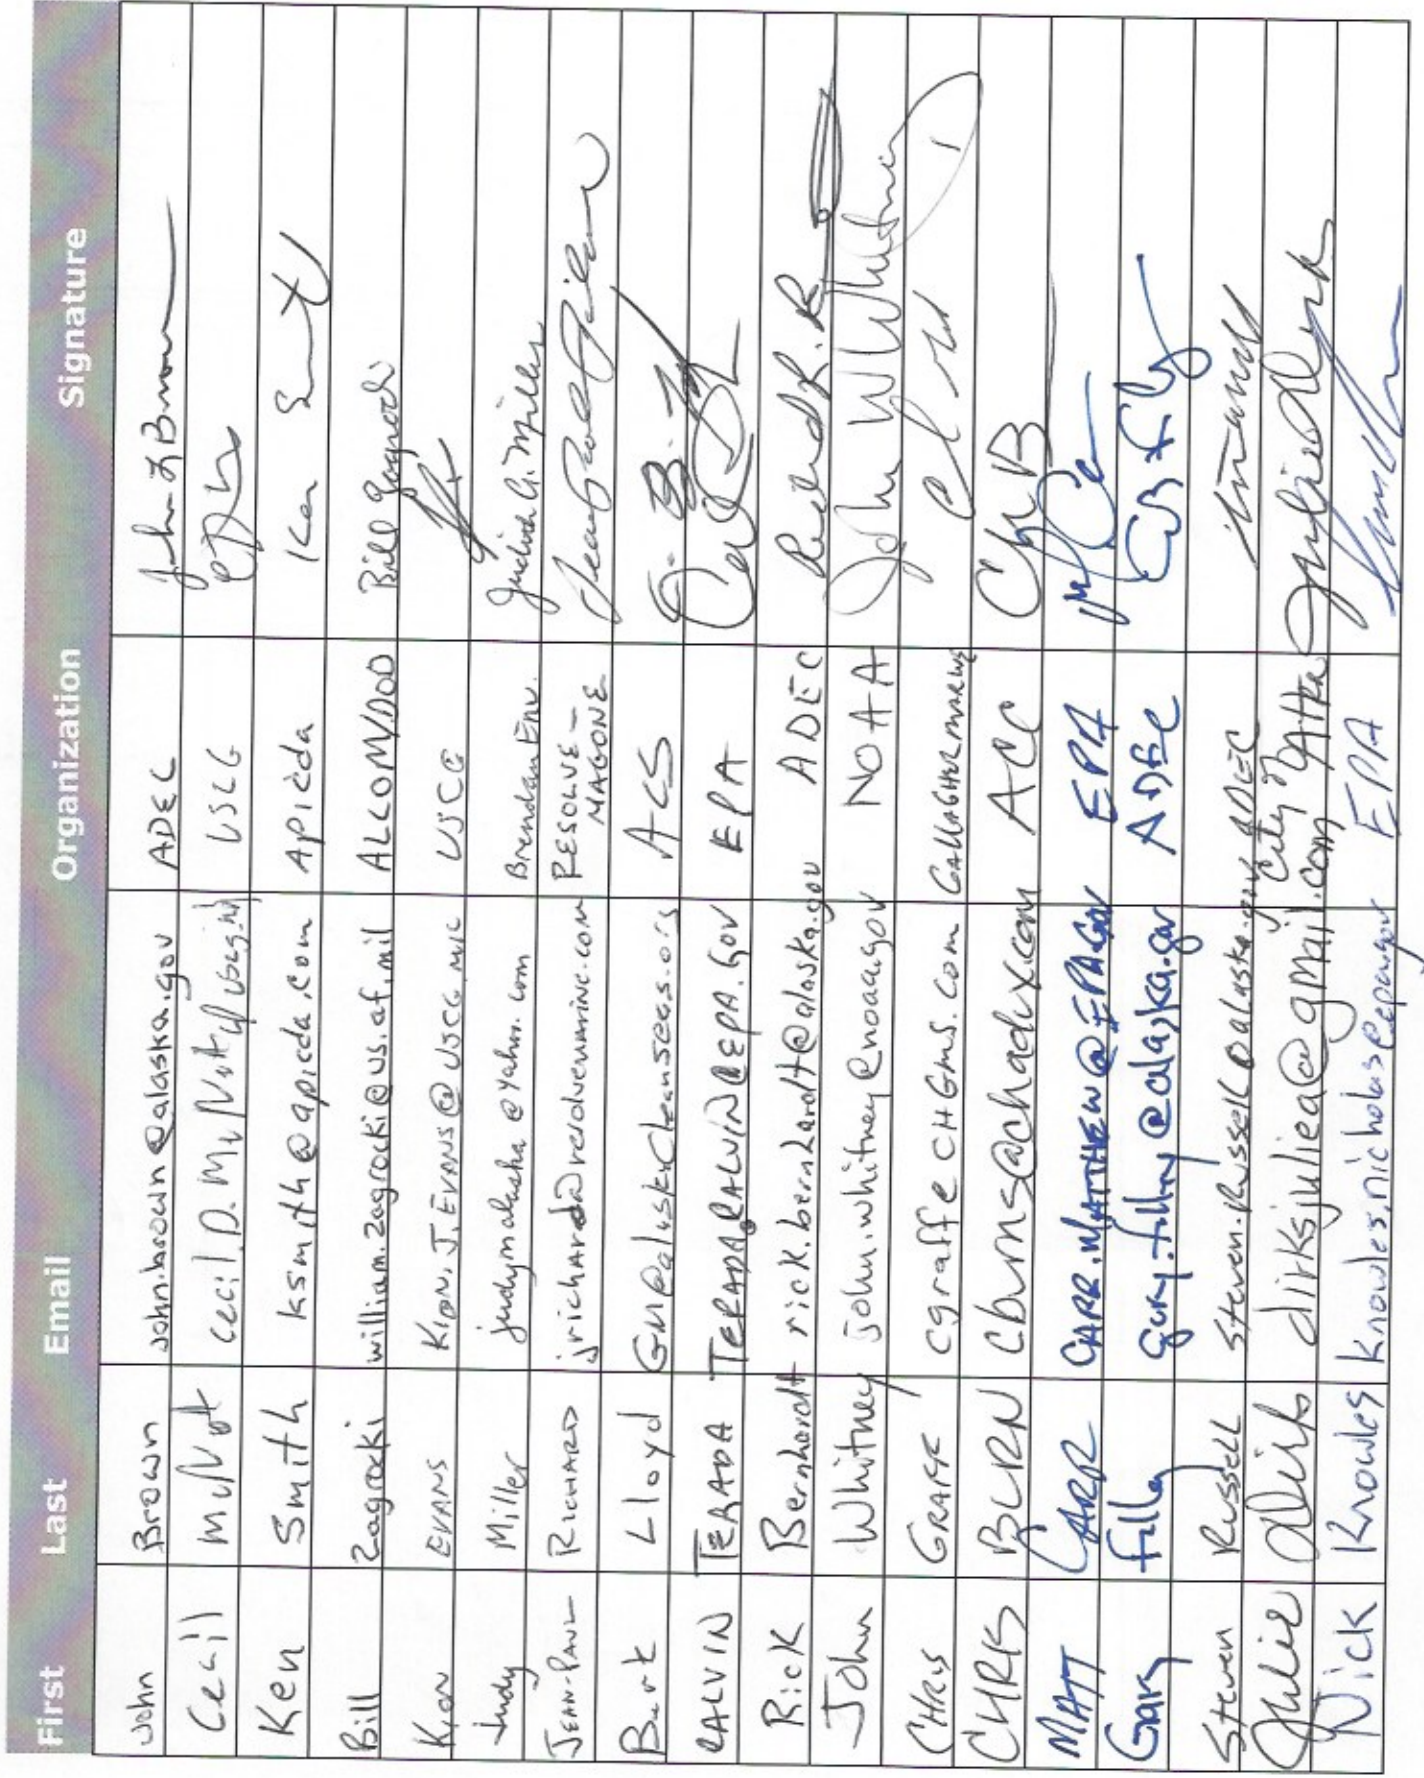 First Last Email Organization Signature
John Brown john.brown@alaska.gov ADEC John L Brown
Cecil McNutt USCG
Ken Smith ksmith@apicda.com Apicda Ken Smith
Bill Zagrocki william.zagrocki@us.af.mil ALCOM/DOD Bill Zagrocki
Kion EVANS KION.J.EVANS@USCG.MIL USCG
Judy Miller judymalasha@yahoo.com Brendan Env. Judith G. Miller
JEAN-PAUL RICHARD jrichard@resolvemarine.com RESOLVE-
MAGONE
Burt Lloyd GM@alaskacleanseas.org ACS
CALVIN TERADA TERADA.CALVIN@EPA.GOV EPA
Rick Bernhardt rick.bernhardt@alaska.gov ADEC
John Whitney john.whitney@noaa.gov NOAA John W Whitney
CHRIS GRAFF cgraff@CHGMS.com GALLAGHER MARINE
CHRIS BURN cburns@chadux.com ACC
MATT CARR CARR.MATTHEW@EPA.GOV EPA
Gary Folley gary.folley@alaska.gov ADEC
Steven Russell steven.russell@alaska.gov ADEC
Julie Dirks dirksjuliea@gmail.com City of Atka Julie Dirks
Nick Knowles knowles.nicholas@epa.gov EPA